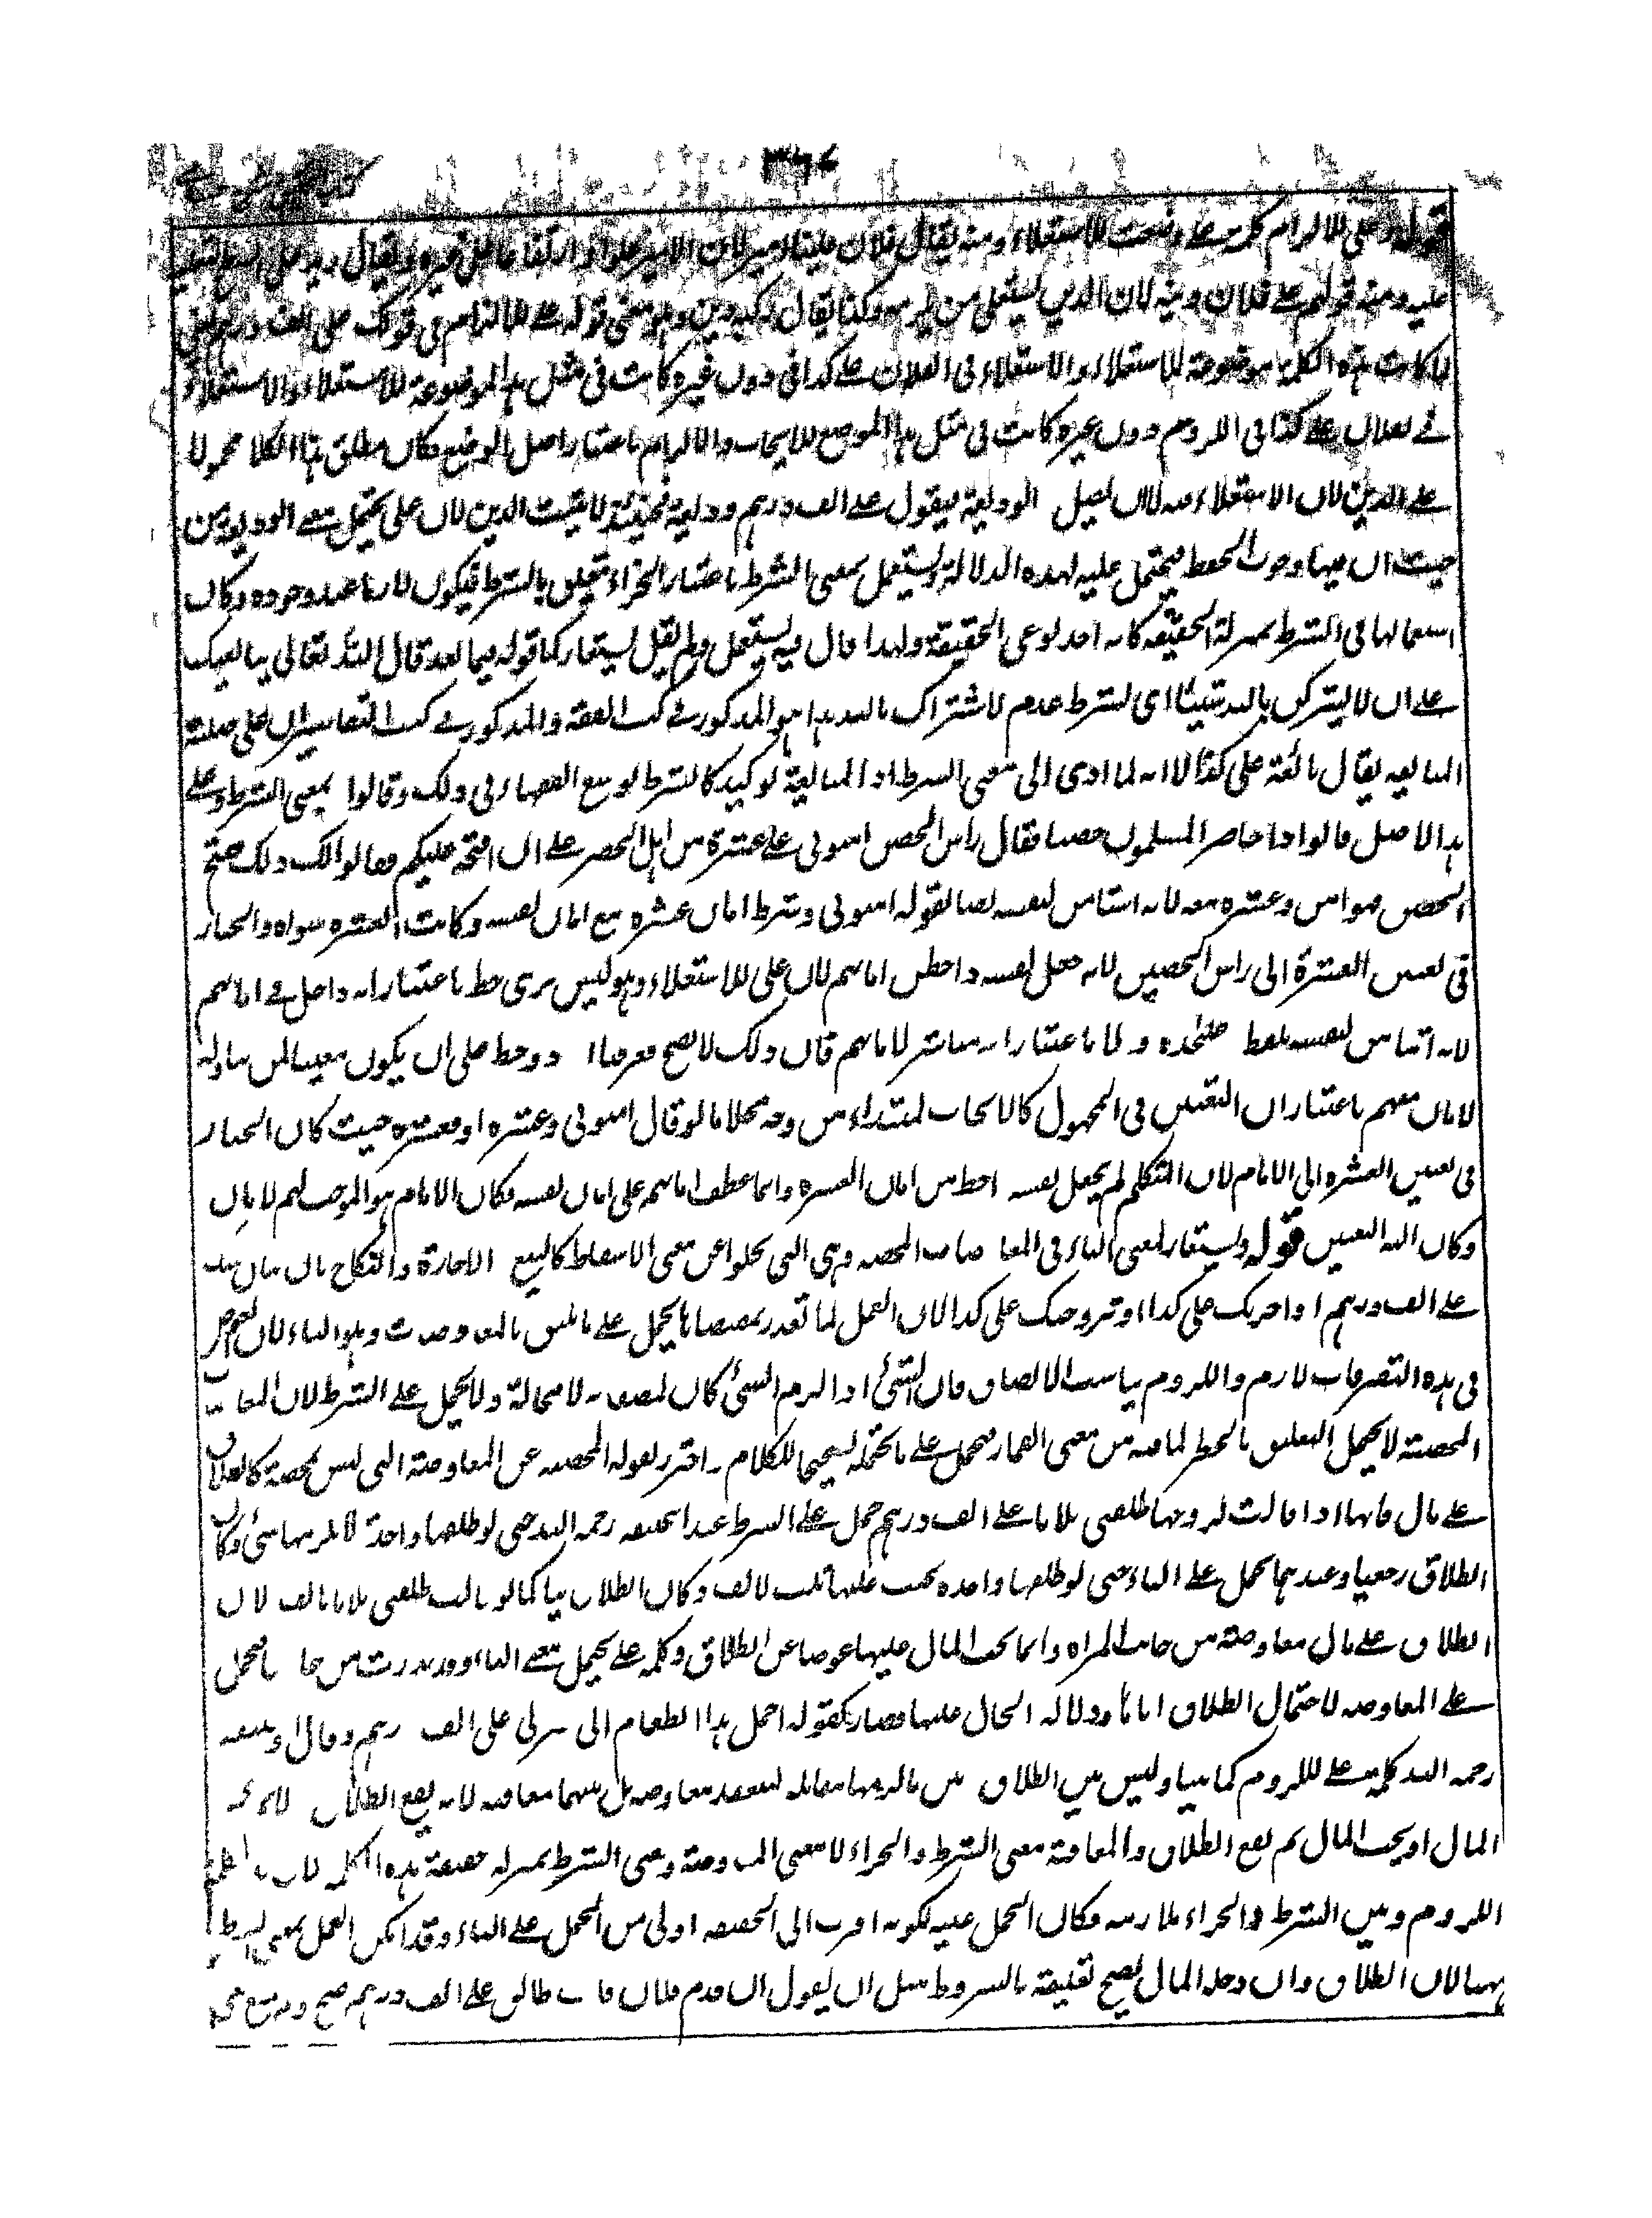 ٣٦٧
قوله وعلى للالزام كلمة على وضعت للاستعلاء ومنه يقال فلان علينا امير لان الامير علوا وارتفاعا على غيره ويقال زيد على السطح
عليه ومنه قولهم على فلان دين لان الدين يستعلى من يلزمه وكذا يقال ركبه دين وهو معنى قوله على للالزام فى قولك على الف درهم
لما كانت هذه الكلمة موضوعة للاستعلاء والاستعلاء فى لفلان على كذا فى دون غيره كانت فى مثل هذا الموضوعة للاستعلاء والاستعلاء
فى لفلان على كذا فى اللزوم دون غيره كانت فى مثل هذا الموضع للايجاب والالزام باعتبار اصل الوضع وكان مطلق هذا الكلام محمولا
على الدين لان الاستعلاء فيه الا ان يصل الوديعة فيقول على الف درهم وديعة فحينئذ لا يثبت الدين لان على يحتمل معنى الوديعة من
حيث ان فيها وجوب الحفظ فيحتمل عليه لهذه الدلالة ويستعمل بمعنى الشرط باعتبار ان الجزاء يتعلق بالشرط فيكون لازما عند وجوده وكان
استعمالها فى الشرط بمنزلة الحقيقة كانه احد نوعى الحقيقة ولهذا قال فيه يستعمل ولم يقل يستعار كما قوله فيما بعد قال الله تعالى يبايعنك
على ان لا يشركن بالله شيئا اى بشرط عدم الاشتراك بالله هذا هو المذكور فى كتب الفقه والمذكور فى كتب التفاسير ان على صلة
المبايعة يقال بايعته على كذا الا انه لما ادى الى معنى الشرط اذ المبايعة توكيد كالشرط توسع الفقهاء فى ذلك وقالوا بمعنى الشرط وعلى
هذا الاصل قالوا اذا حاصر المسلمون حصنا فقال راس الحصن امنونى على عشرة من اهل الحصن على ان افتحه عليكم فقالوا لك ذلك ففتح
الحصن فهو امن وعشرة معه لانه استامن لنفسه نصا بقوله امنونى وشرط امان عشرة مع امان نفسه وكانت العشرة سواه والخيار
فى تعيين العشرة الى راس الحصن لانه جعل نفسه ذا حظ من امانهم لان على للاستعلاء وهو ليس بذى حظ باعتبار انه داخل فى امانهم
لانه استامن لنفسه بلفظ على حدة ولا باعتبار انه مباشر لامانهم فان ذلك لا يصح فعرفنا ذو حظ على ان يكون معينا لمن تناوله
الامان منهم باعتبار ان التعيين فى المجهول كالايجاب المبتداء من وجه بخلاف ما لو قال امنونى وعشرة او فعشرة حيث كان الخيار
فى تعيين العشرة الى الامام لان المتكلم لم يجعل نفسه ذا حظ من امان العشرة وانما عطف امانهم على امان نفسه فكان الامام هو الموجب لهم الامان
وكان اليه التعيين قوله ويستعار لمعنى الباء فى المعاوضات المحضة وهى التى تخلوا عن معنى الاسقاط كالبيع الاجارة والنكاح بان قال بعت
على الف درهم او اجرتك على كذا او تزوجتك على كذا لان العمل لما تعذر بحقيقتها يحمل على ما يليق بالمعاوضات وهو الباء لان العوض
فى هذه التصرفات لازم واللزوم يناسب الالصاق فان الشئ اذا لزم الشئ كان ملصقا به لا محالة ولا يحمل على الشرط لان المعاوضات
المحضة لا يحتمل التعليق بالخطر لما فيه من معنى القمار فيحمل على ما تحتمله تصحيحا للكلام واحترز بقوله المحضة عن المعاوضة التى ليس بمحضة كالطلاق
على مال فانها اذا قالت لزوجها طلقنى ثلاثا على الف درهم حمل على الشرط عند ابى حنيفة رحمه الله حتى لو طلقها واحدة لا يلزمها شئ وكان
الطلاق رجعيا وعندهما يحمل على الباء حتى لو طلقها واحدة يجب عليها ثلث الالف وكان الطلاق بائنا كما لو قالت طلقنى ثلاثا بالف لان
الطلاق على مال معاوضة من جانب المراة وانما يجب المال عليها عوضا عن الطلاق وكلمة على يحتمل معنى الباء وقد صدرت من جانبها فتحمل
على المعاوضة لاحتمال الطلاق اياها ودلالة الحال عليها فصار كقوله احمل هذا الطعام الى منزلى على الف درهم وقال ابو حنيفة
رحمه الله كلمة على للزوم كما بينا وليس بين الطلاق وبين ما لزمها مقابلة لينعقد معاوضة بل بينهما معاقبة لانه يقع الطلاق
المال او يجب المال ثم يقع الطلاق والمعاقبة معنى الشرط والجزاء لا معنى المعاوضة ومعنى الشرط بمنزلة حقيقة هذه الكلمة لان
اللزوم وبين الشرط والجزاء ملازمة فكان الحمل عليه لكونه اقرب الى الحقيقة اولى من الحمل على الباء وقد امكن العمل بمعنى الشرط
ههنا لان الطلاق وان دخله المال يصح تعليقه بالشروط مثل ان يقول ان قدم فلان فانت طالق على الف درهم صح